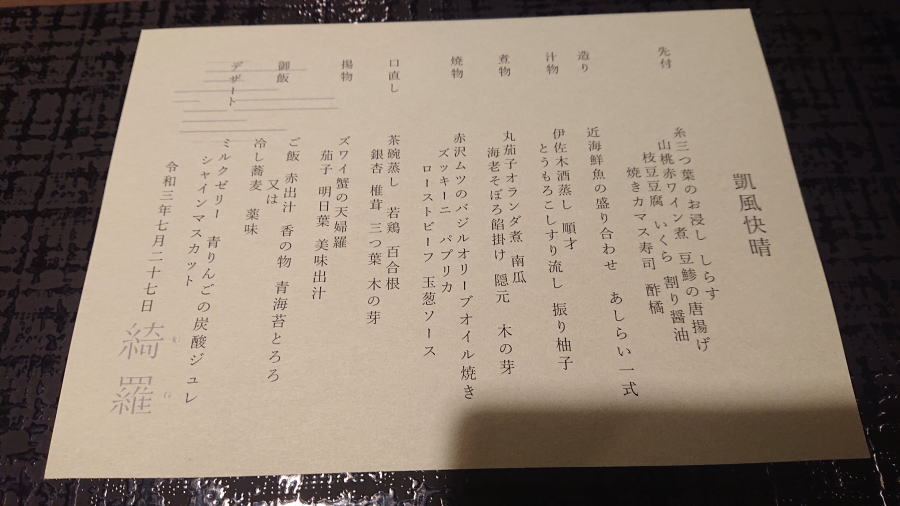 凱風快晴
先付
糸三つ葉のお浸し しらす
山桃赤ワイン煮 豆鯵の唐揚げ
枝豆豆腐 いくら 割り醤油
焼きカマス寿司 酢橘
造り
近海鮮魚の盛り合わせ あしらい一式
汁物
伊佐木酒蒸し 順才
とうもろこしすり流し 振り柚子
煮物
丸茄子オランダ煮 南瓜
海老そぼろ餡掛け 隠元 木の芽
焼物
赤沢ムツのバジルオリーブオイル焼き
ズッキーニ パプリカ
ローストビーフ 玉葱ソース
口直し
茶碗蒸し 若鶏 百合根
銀杏 椎茸 三つ葉 木の芽
揚物
ズワイ蟹の天婦羅
茄子 明日葉 美味出汁
御飯
ご飯 赤出汁 香の物 青海苔とろろ
又は
冷し蕎麦 薬味
デザート
ミルクゼリー 青りんごの炭酸ジュレ
シャインマスカット
令和三年七月二十七日
綺羅